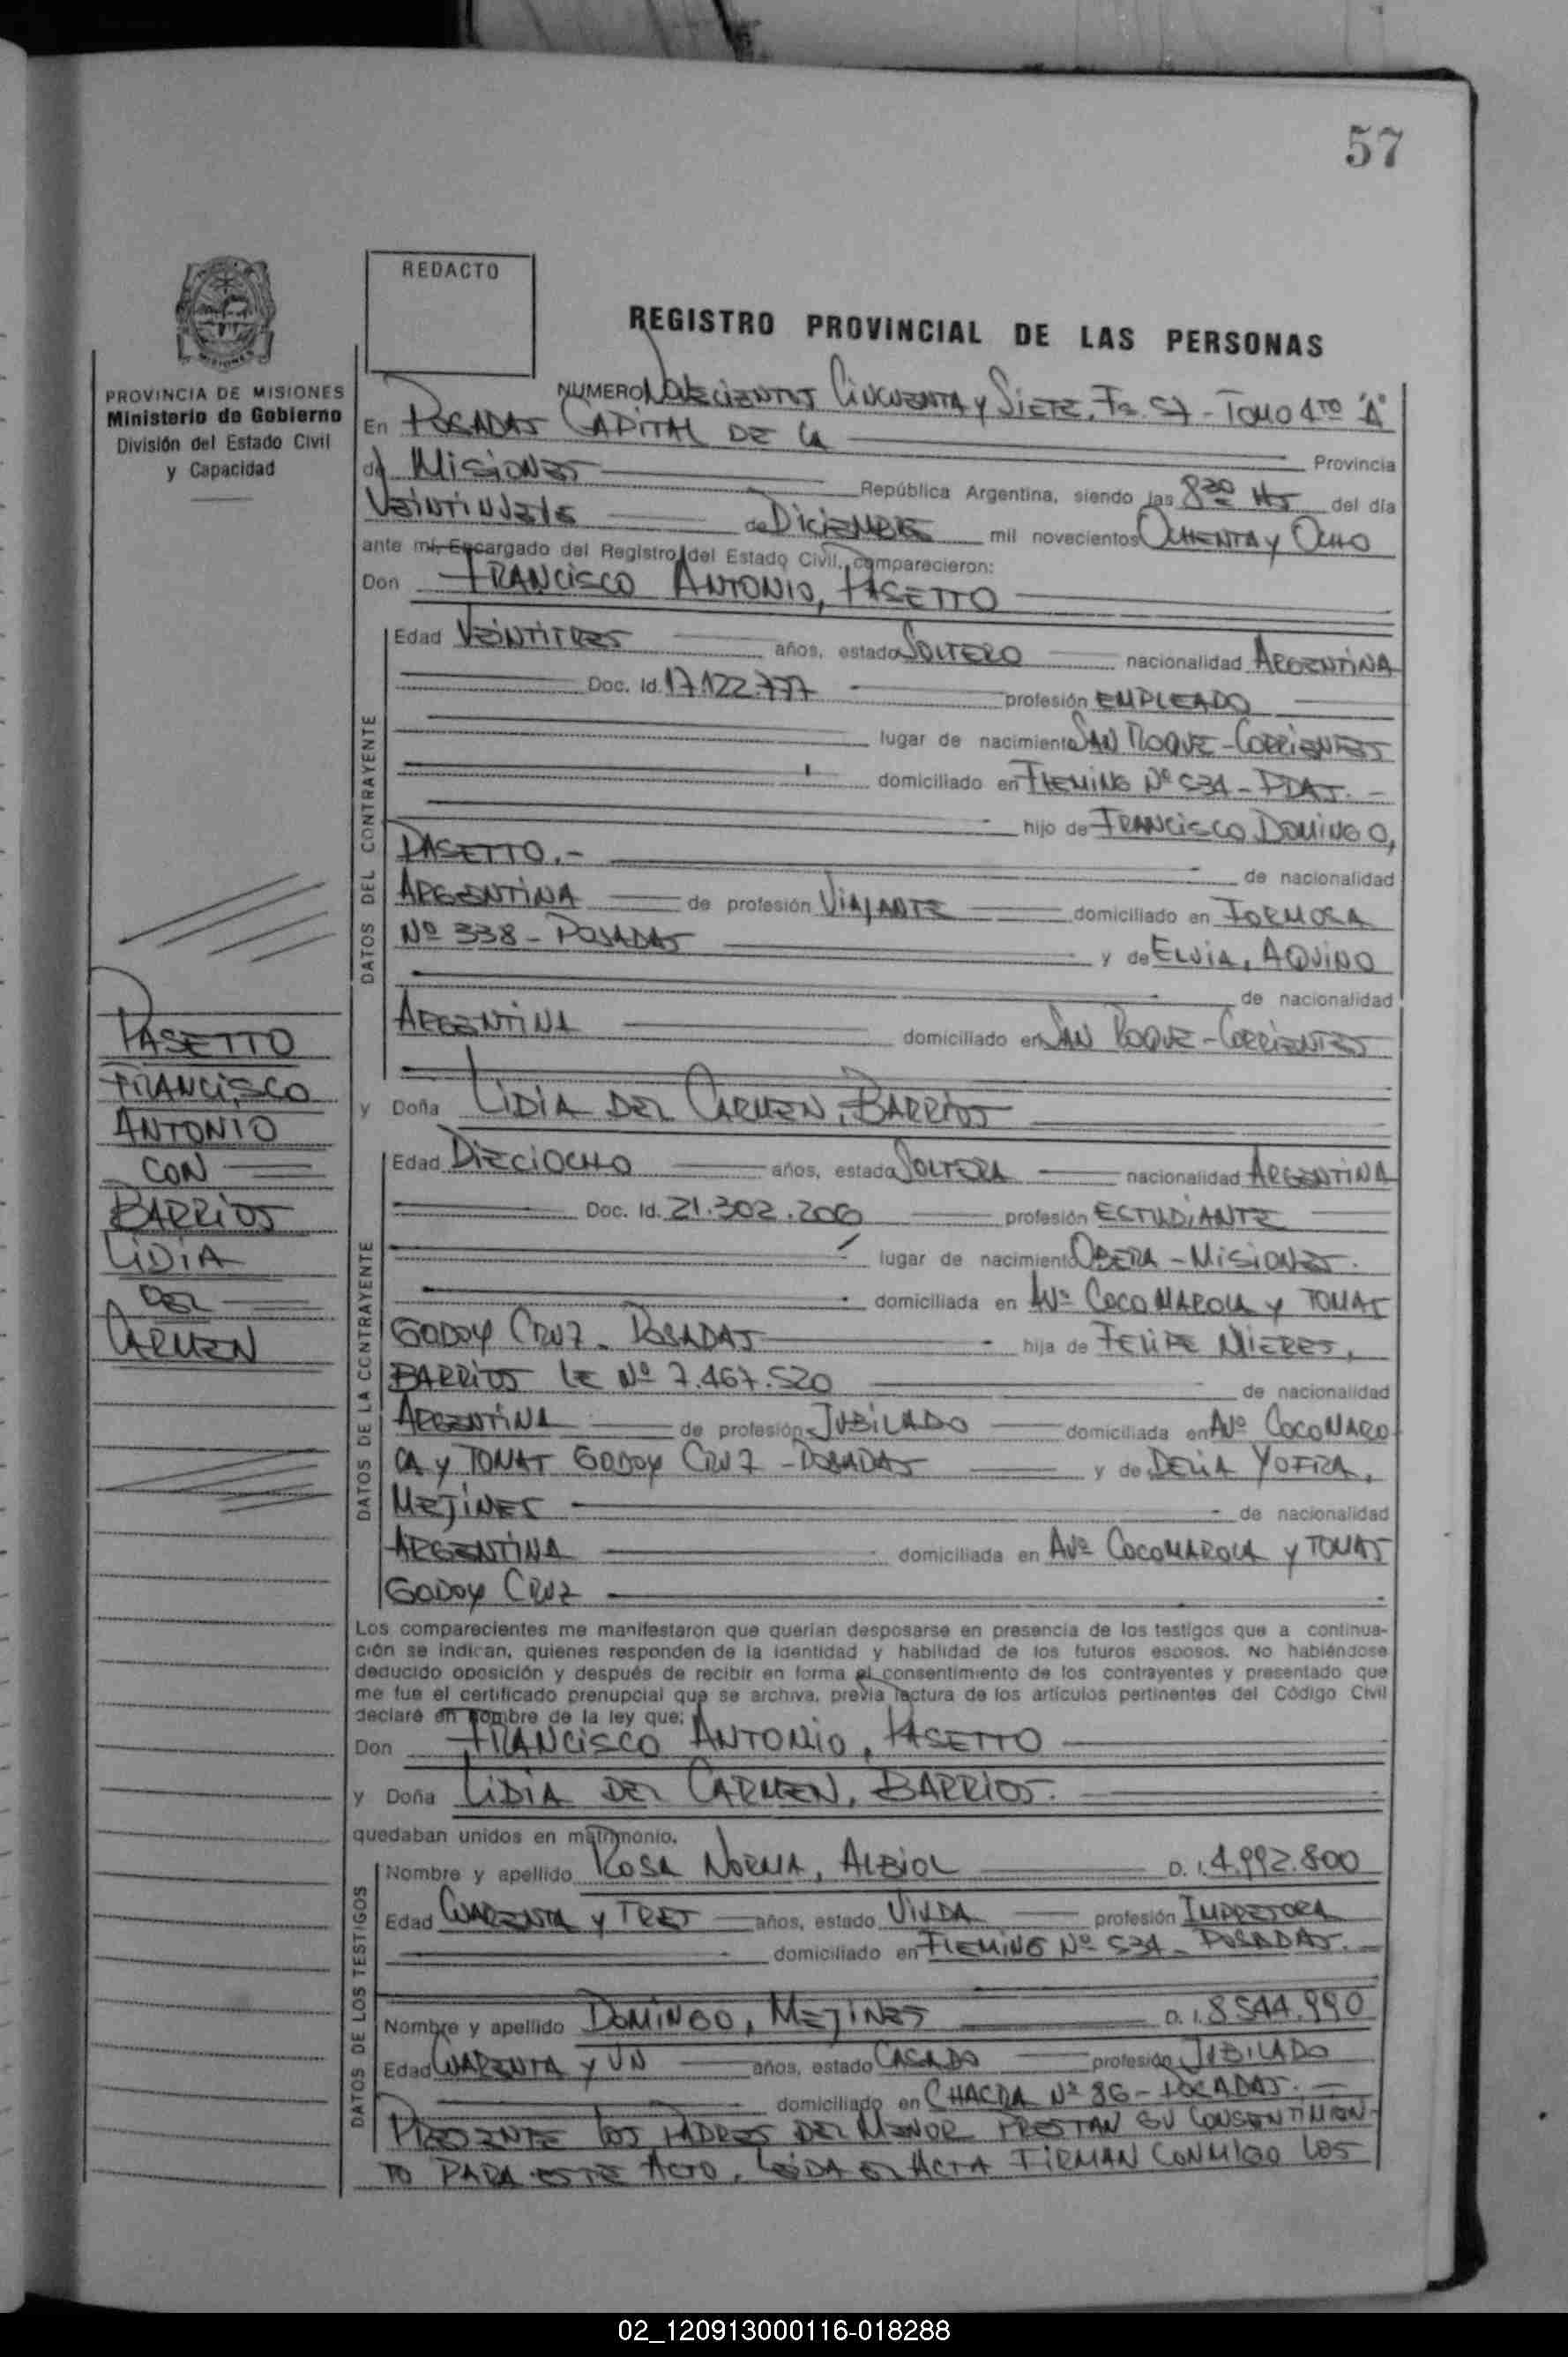 57
REDACTO
REGISTRO PROVINCIAL DE LAS PERSONAS
PROVINCIA DE MISIONES
Ministerio de Gobierno
División del Estado Civil
y Capacidad
NUMERO NOVECIENTOS CINCUENTA Y SIETE. Fo. 57 - TOMO 4TO "A"
En POSADAS CAPITAL DE LA Provincia
de MISIONES República Argentina, siendo las 8 30 HS del día
VEINTINUEVE de DICIEMBRE mil novecientos OCHENTA Y OCHO
ante mí, Encargado del Registro del Estado Civil, comparecieron:
Don FRANCISCO ANTONIO, PASETTO
DATOS DEL CONTRAYENTE
Edad VEINTITRES años, estado SOLTERO nacionalidad ARGENTINA
Doc. Id. 17.122.777 profesión EMPLEADO
lugar de nacimiento SAN ROQUE - CORRIENTES
domiciliado en FLEMING Nº 534 - PDAS. -
hijo de FRANCISCO DOMINGO,
PASETTO. - de nacionalidad
ARGENTINA de profesión VIAJANTE domiciliado en FORMOSA
Nº 338 - POSADAS y de ELVIA, AQUINO
de nacionalidad
ARGENTINA domiciliado en SAN ROQUE - CORRIENTES
PASETTO
FRANCISCO
ANTONIO
CON
BARRIOS
LIDIA
DEL
CARMEN
y Doña LIDIA DEL CARMEN, BARRIOS
DATOS DE LA CONTRAYENTE
Edad DIECIOCHO años, estado SOLTERA nacionalidad ARGENTINA
Doc. Id. 21.302.206 profesión ESTUDIANTE
lugar de nacimiento OBERA - MISIONES.
domiciliada en AVª COCOMAROLA Y TOMAS
GODOY CRUZ - POSADAS hija de FELIPE NIERES,
BARRIOS LE Nº 7.467.520 de nacionalidad
ARGENTINA de profesión JUBILADO domiciliada en AVª COCOMARO
LA Y TOMAS GODOY CRUZ - POSADAS y de DELIA YOFRA,
MEJINES de nacionalidad
ARGENTINA domiciliada en AVª COCOMAROLA Y TOMAS
GODOY CRUZ
Los comparecientes me manifestaron que querían desposarse en presencia de los testigos que a continua-
ción se indican, quienes responden de la identidad y habilidad de los futuros esposos. No habiéndose
deducido oposición y después de recibir en forma el consentimiento de los contrayentes y presentado que
me fue el certificado prenupcial que se archiva, previa lectura de los artículos pertinentes del Código Civil
declaré en nombre de la ley que:
Don FRANCISCO ANTONIO, PASETTO
y Doña LIDIA DEL CARMEN, BARRIOS.
quedaban unidos en matrimonio.
DATOS DE LOS TESTIGOS
Nombre y apellido ROSA NORMA, ALBIOL D. I. 4.992.800
Edad CUARENTA Y TRES años, estado VIUDA profesión IMPRESORA
domiciliado en FLEMING Nº 534 - POSADAS. -
Nombre y apellido DOMINGO, MEJINES D. I. 8544.990
Edad CUARENTA Y UN años, estado CASADO profesión JUBILADO
domiciliado en CHACRA Nº 86 - POSADAS. -
PRESENTE LOS PADRES DEL MENOR PRESTAN SU CONSENTIMIEN-
TO PARA ESTE ACTO. LEIDA EL ACTA FIRMAN CONMIGO LOS
02_120913000116-018288